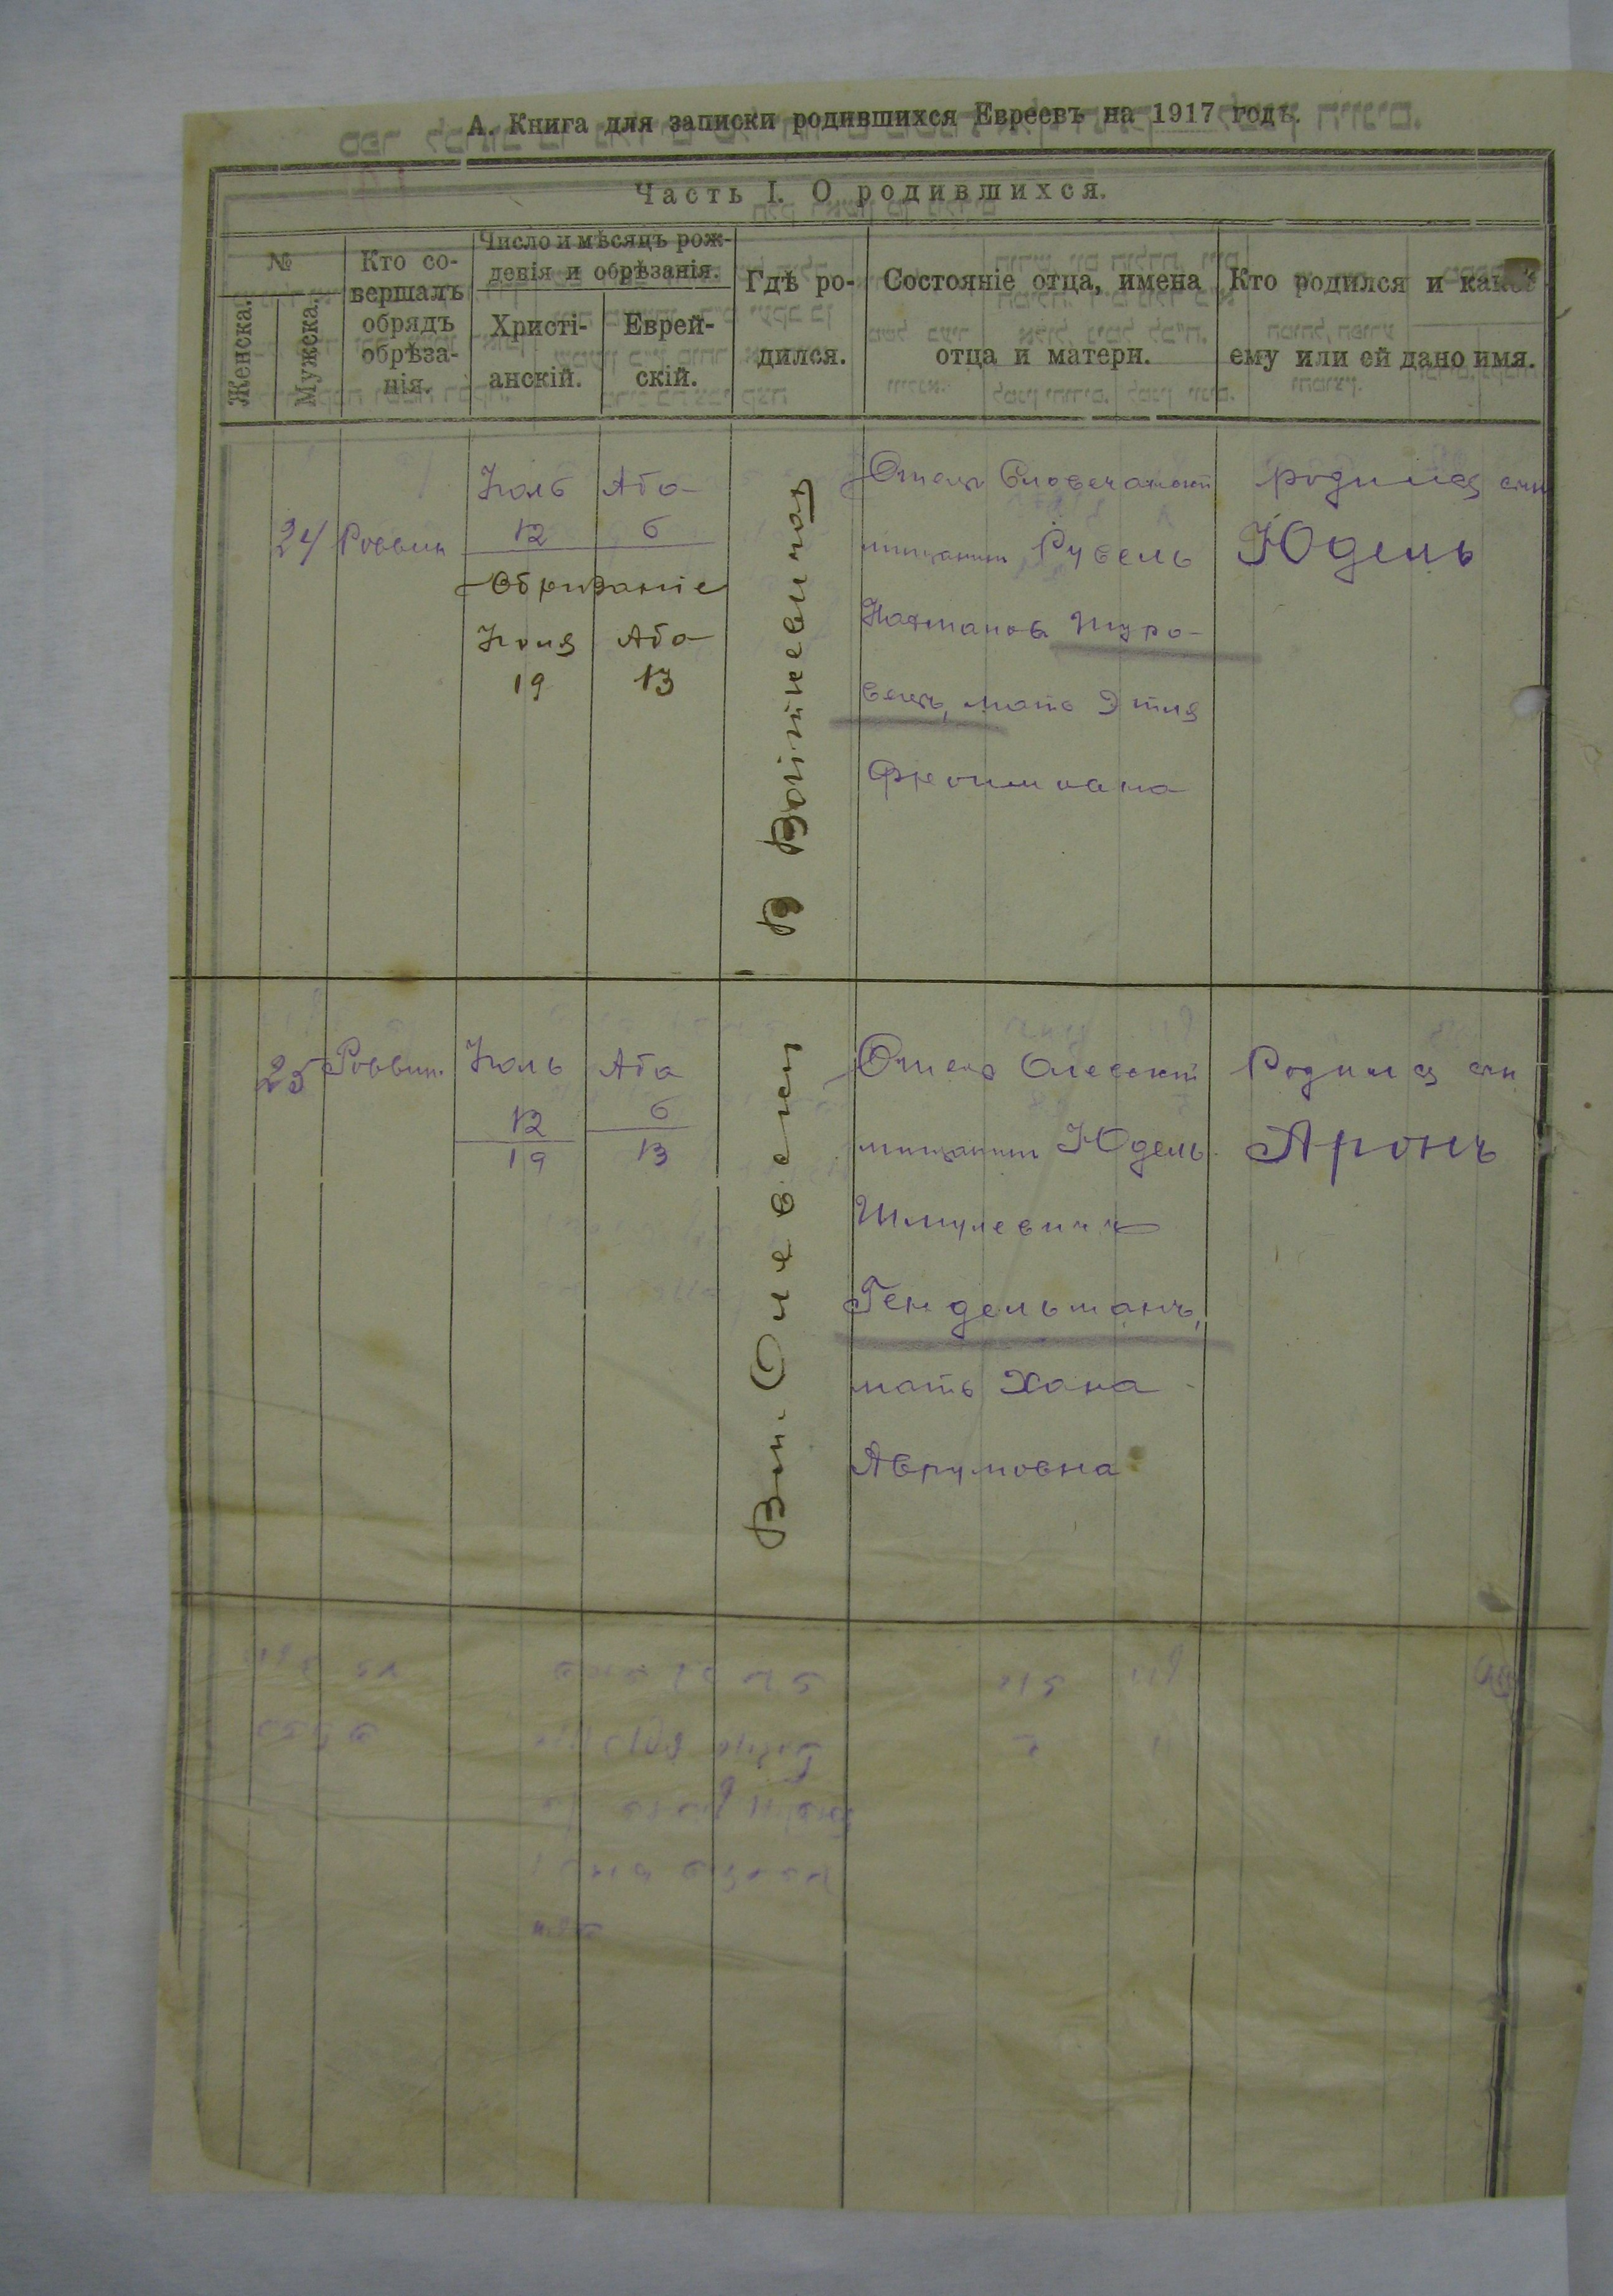 А. Книга для записки родившихся Евреевъ на 1917 годъ.
Часть I. О родившихся.
№
Женска.
Мужска.
Кто со-
вершалъ
обрядъ
обрѣза-
нія.
Число и мѣсяцъ рож-
денія и обрѣзанія.
Христі-
анскій.
Еврей-
скій.
Гдѣ ро-
дился.
Состояніе отца, имена
отца и матери.
Кто родился и какое
ему или ей дано имя.
24
Раввин
Июль
12
Аба
6
Обризаніе
Июля
19
Аба
13
В Войткевичах
Отець Словечанский
мищанин Рувель
Нахманов Туро-
вець, мать Этля
Фроимовна
родился син
Юдель
25
Раввин.
Июль
12
19
Аба
6
13
В м. Олевске
Отець Олевский
мищанин Юдель
Шмулевич
Гендельманъ,
мать Хана
Аврумовна
Родился син
Аронъ